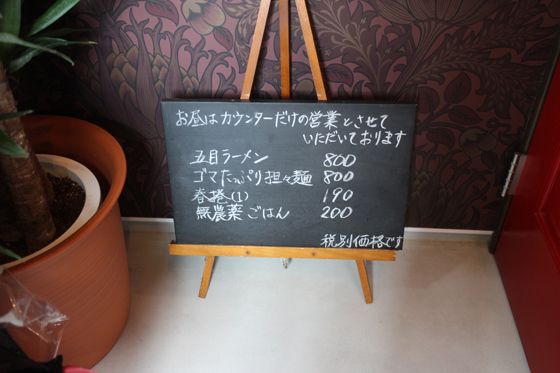 お昼はカウンターだけの営業とさせて
いただいております
五目ラーメン 800
ゴマたっぷり担々麺 800
春捲(1) 190
無農薬ごはん 200
税別価格です